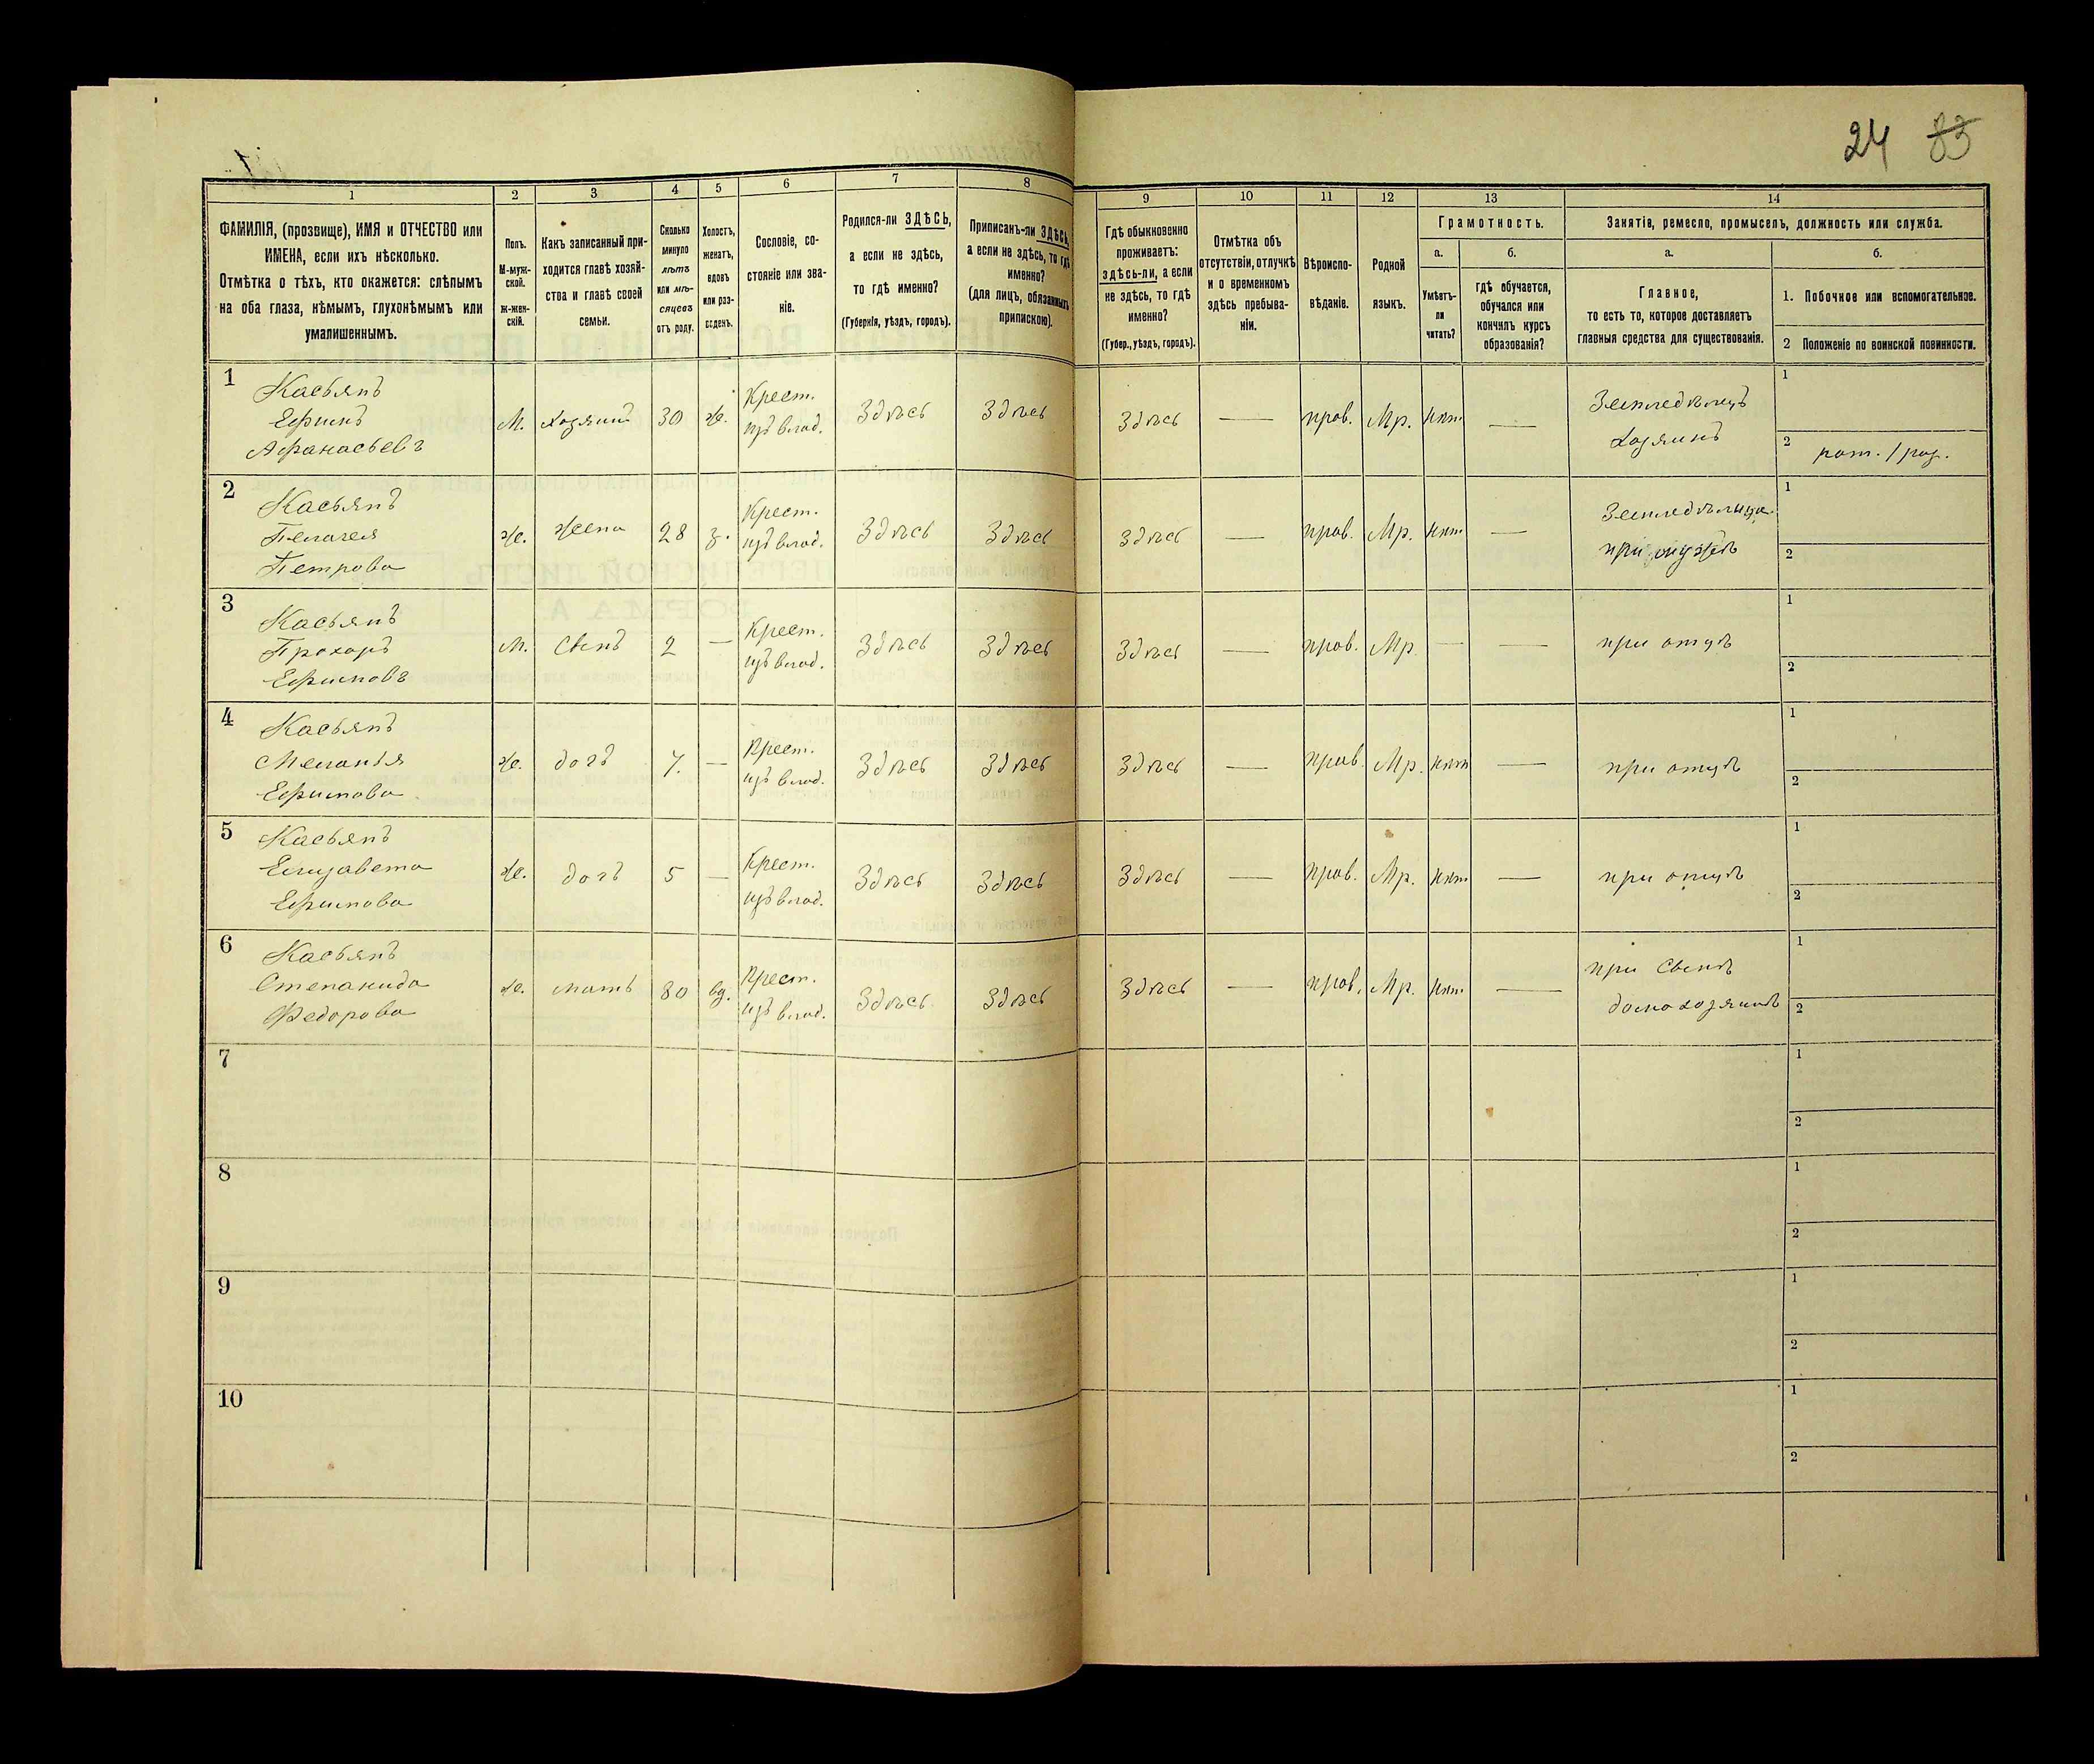 24 83
1 2 3 4 5 6 7 8 9 10 11 12 13 14
ФАМИЛІЯ, (прозвище), ИМЯ и ОТЧЕСТВО или
ИМЕНА, если ихъ нѣсколько.
Отмѣтка о тѣхъ, кто окажется: слѣпымъ
на оба глаза, нѣмымъ, глухонѣмымъ или
умалишеннымъ.
Полъ.
М-муж-
ской.
Ж-жен-
скій.
Какъ записанный при-
ходится главѣ хозяй-
ства и главѣ своей
семьи.
Сколько
минуло
лѣтъ
или мѣ-
сяцевъ
отъ роду.
Холостъ,
женатъ,
вдовъ
или раз-
веденъ.
Сословіе, со-
стояніе или зва-
ніе.
Родился-ли ЗДѢСЬ,
а если не здѣсь,
то гдѣ именно?
(Губернія, уѣздъ, городъ).
Приписанъ-ли ЗДѢСЬ,
а если не здѣсь, то гдѣ
именно?
(для лицъ, обязанныхъ
припискою).
Гдѣ обыкновенно
проживаетъ:
здѣсь-ли, а если
не здѣсь, то гдѣ
именно?
(Губер., уѣздъ, городъ).
Отмѣтка объ
отсутствіи, отлучкѣ
и о временномъ
здѣсь пребыва-
ніи.
Вѣроиспо-
вѣданіе.
Родной
языкъ.
Грамотность.
а.
Умѣетъ-
ли
читать?
б.
гдѣ обучается,
обучался или
кончилъ курсъ
образованія?
Занятія, ремесло, промыселъ, должность или служба.
а.
Главное,
то есть то, которое доставляетъ
главныя средства для существованія.
б.
1. Побочное или вспомогательное.
2 Положеніе по воинской повинности.
1 Касьянъ
Ефимъ
Афанасьевъ
М. хозяинъ 30 ж. Крест.
изъ влад. Здѣсь Здѣсь Здѣсь — прав. Мр. нѣт — Земледѣлецъ
хозяинъ
1
2 рат. 1 раз.
2 Касьянъ
Пелагея
Петрова
Ж. жена 28 з. Крест.
изъ влад. Здѣсь Здѣсь Здѣсь — прав. Мр. нѣт — Земледѣлица
при мужѣ
1
2
3 Касьянъ
Прохоръ
Ефимовъ
М. Сынъ 2 — Крест.
изъ влад. Здѣсь Здѣсь Здѣсь — прав. Мр. — — при отцѣ
1
2
4 Касьянъ
Меланія
Ефимова
Ж. дочь 7. — Крест.
изъ влад. Здѣсь Здѣсь Здѣсь — прав. Мр. нѣт — при отцѣ
1
2
5 Касьянъ
Елизавета
Ефимова
Ж. дочь 5 — Крест.
изъ влад. Здѣсь Здѣсь Здѣсь — прав. Мр. нѣт — при отцѣ
1
2
6 Касьянъ
Степанида
Федорова
Ж. мать 80 вд. Крест.
изъ влад. Здѣсь Здѣсь Здѣсь — прав. Мр. нѣт — при Сынѣ
домохозяинѣ
1
2
7
1
2
8
1
2
9
1
2
10
1
2